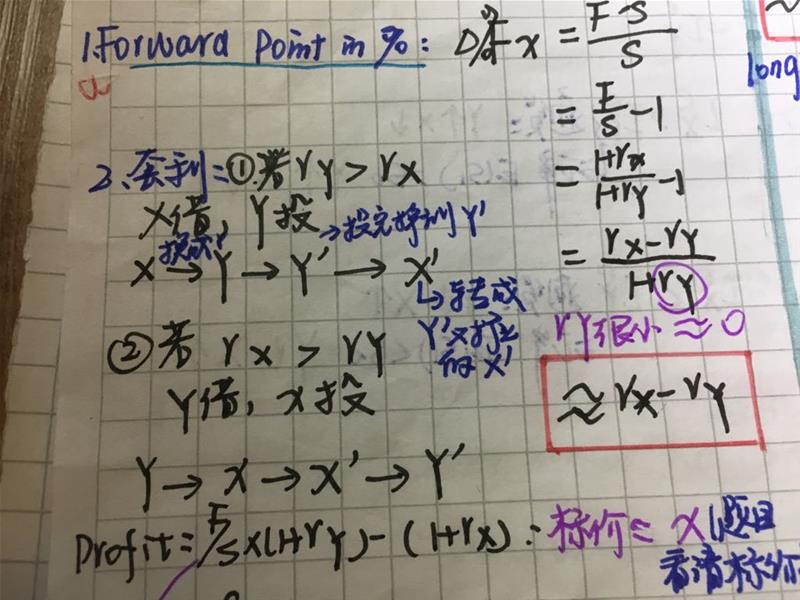 1.Forward Point in %: = F-S / S
= F/S -1
= 1+rx / 1+ry -1
= rx-ry / 1+ry
ry很小≈0
≈ rx-ry
2、套利:①若 ry > rx
X借, Y投 →投完挣到Y'
换成
X → Y → Y' → X'
↳转成
Y'x
的X'
②若 rx > ry
Y借, x投
Y → x → x' → Y'
Profit = F/S x(1+ry) - (1+rx): 标价= x(题目
看清标价
long